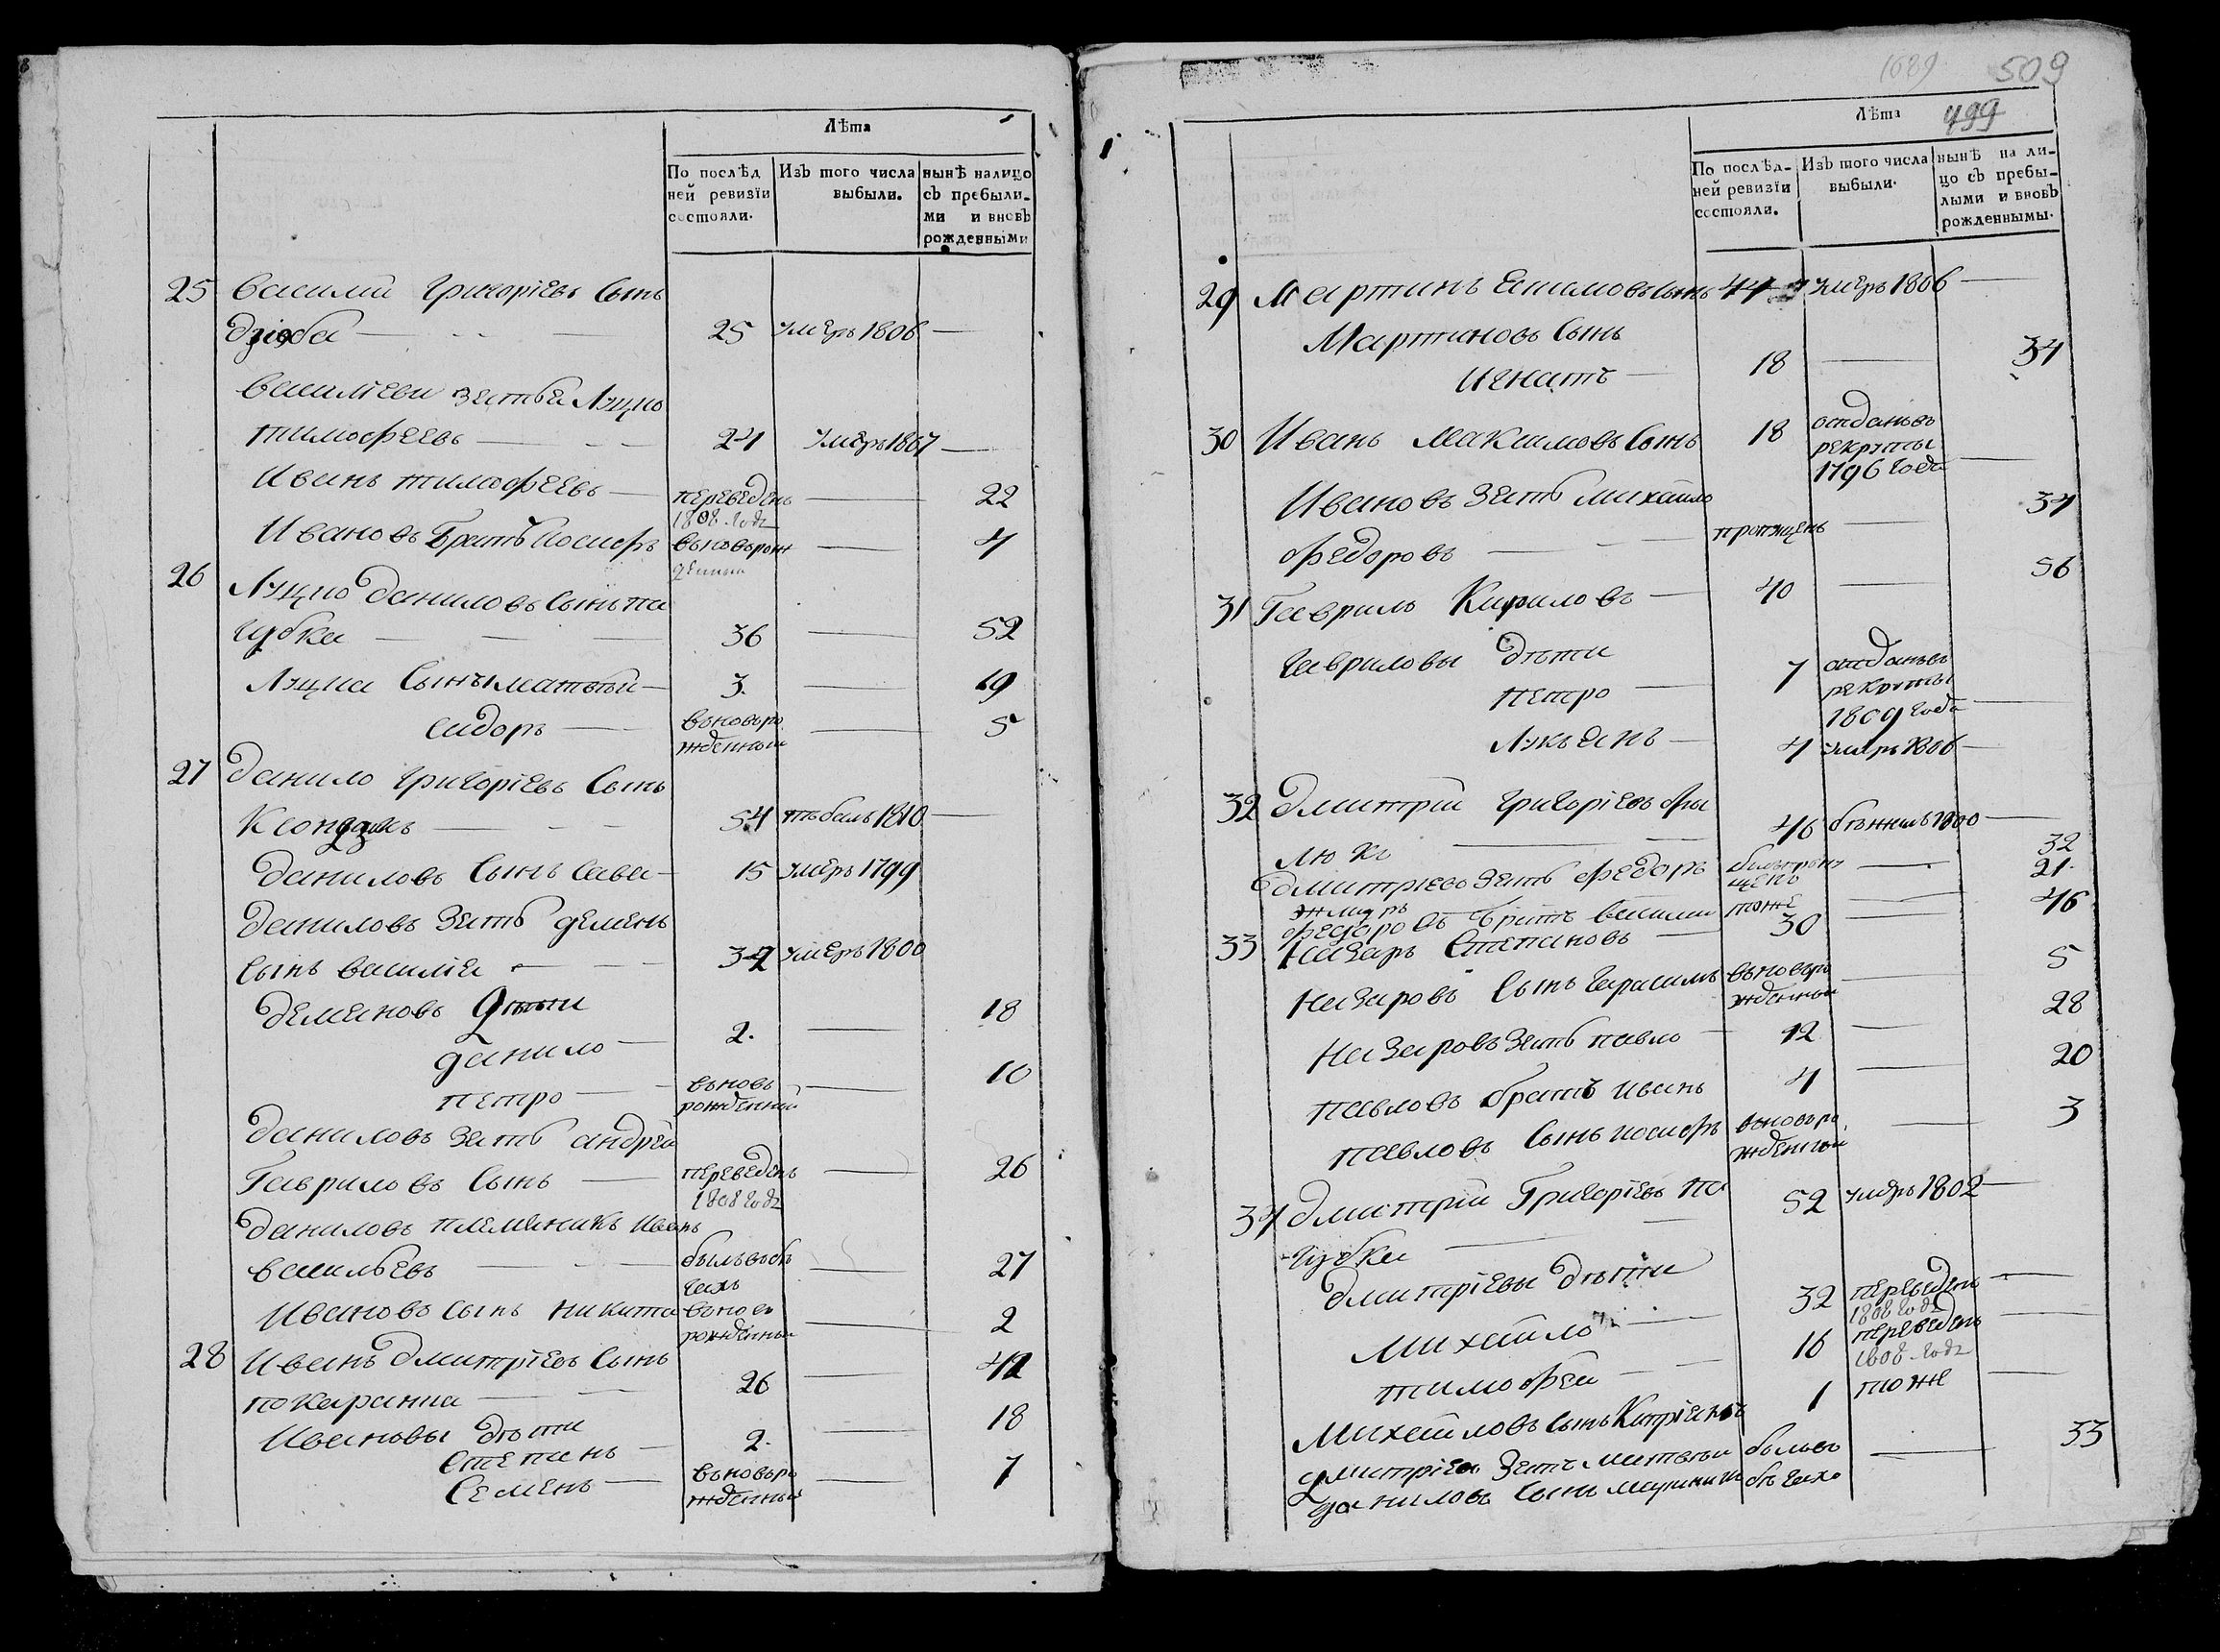 Лѣта
По послѣд
ней ревизіи
состояли.
Изъ того числа
выбыли.
нынѣ налицо
съ прѣбыли-
ми и вновь
рожденными
25 Василій Григоріевъ Сынъ
Дзюба — 25 умеръ 1806 —
Василіевы зятья Луцио
Тимофеевъ — 24 умеръ 1807 —
Иванъ тимофеевъ — переведенъ — 22
1808 года
Ивановъ Братъ Иосифъ вьновьрож — 4
денный
26 Луцио Даниловъ Сынъ па
губка — 36 — 52
Луциа Сынъ матвѣй — 3. — 19
сидоръ — вьновьро — 5
жденный
27 Данило Григоріевъ Сынъ
54 1810 —
Даниловъ Сынъ Сава — 15 умеръ 1799
Даниловъ зять демянъ
Сынъ василіа — 34 умеръ 1800
демяновъ Дѣти
данило — 2. — 18
петро — вьновь — 10
рожденный
Даниловъ зять андрей
Гавриловъ Сынъ — переведенъ — 26
1808 года
Даниловъ племяникъ Иванъ
васильевъ — былъвъбѣ — 27
гахъ
Ивановъ Сынъ никита вьновь — 2
рожденный
28 Иванъ Дмитріевъ Сынъ
26 — 42
Ивановы Дѣти
степанъ — 2. — 18
Семенъ — вьновьро — 7
жденный
1689 509
Лѣта 499
По послѣд-
ней ревизіи
состояли.
Изъ того числа
выбыли.
нынѣ на ли-
цо съ пребы-
лыми и вновь
рожденнымы.
29 Мартинъ Сынъ 44 умеръ 1806 —
Мартиновъ Сынъ
Игнатъ — 18 — 34
30 Иванъ Максимовъ Сынъ 18 отданъвъ
рекруты
1796 года —
Ивановъ зять михайло
Федоровъ — пропущенъ — 34
31 Гаврилъ Кириловъ — 40 — 56
Гавриловы дѣти
петро — 7 отданъвъ
рекруты
1809 года —
Лукъянъ — 4 умеръ 1806 —
32 Дмитрій Григоріевъ
46 бѣжалъ 1800 —
Дмитріевъ зять Федоръ — 32
Федоровъ братъ василій тоже — 21.
33 Назаръ Степановъ — 30 — 46
Назаровъ Сынъ Герасимъ вьновьро — 5
жденный
Назаровъ зять павло — 12 — 28
Павловъ братъ иванъ 4 — 20
Павловъ Сынъ иосифъ вьновьро — 3
жденный
34 Дмитрій Григоріевъ па 52 умеръ 1802 —
губка —
Дмитріевы Дѣти
михайло — 32 переведенъ —
1808 года
тимофей — 16 переведенъ —
1808 года
Михайловъ Сынъ Кипріянъ 1 тоже —
дмитріевъ зять матвѣй былъвъ — 33
даниловъ Сынъ бѣгахъ